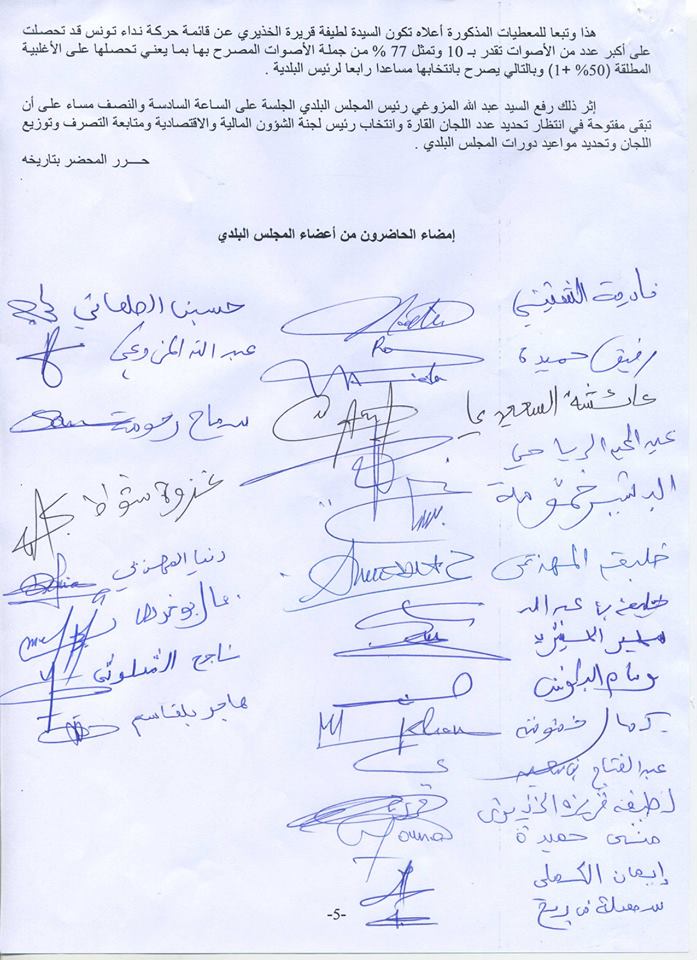 هذا وتبعا للمعطيات المذكورة أعلاه تكون السيدة لطيفة قريرة الخذيري عن قائمة حركة نداء تونس قد تحصلت
على أكبر عدد من الأصوات تقدر بـ 10 وتمثل 77 % من جملة الأصوات المصرح بها بما يعني تحصلها على الأغلبية
المطلقة (50% +1) وبالتالي يصرح بانتخابها مساعدا رابعا لرئيس البلدية .
إثر ذلك رفع السيد عبد الله المزوغي رئيس المجلس البلدي الجلسة على الساعة السادسة والنصف مساء على أن
تبقى مفتوحة في انتظار تحديد عدد اللجان القارة وانتخاب رئيس لجنة الشؤون المالية والاقتصادية ومتابعة التصرف وتوزيع
اللجان وتحديد مواعيد دورات المجلس البلدي .
حـــرر المحضر بتاريخه
إمضاء الحاضرون من أعضاء المجلس البلدي
حسين
عبد الله المزوغي
سماح رحومة
غزوة شواط
دنيا
ناجح
هاجر بلقاسم
رفيق حميدة
عائشة السعيدي
الرياحي
البشير
المهذبي
وسام
كمال
Khan
عبد الفتاح
لطيفة قريرة الخذيري
حميدة
إيمان
-5-